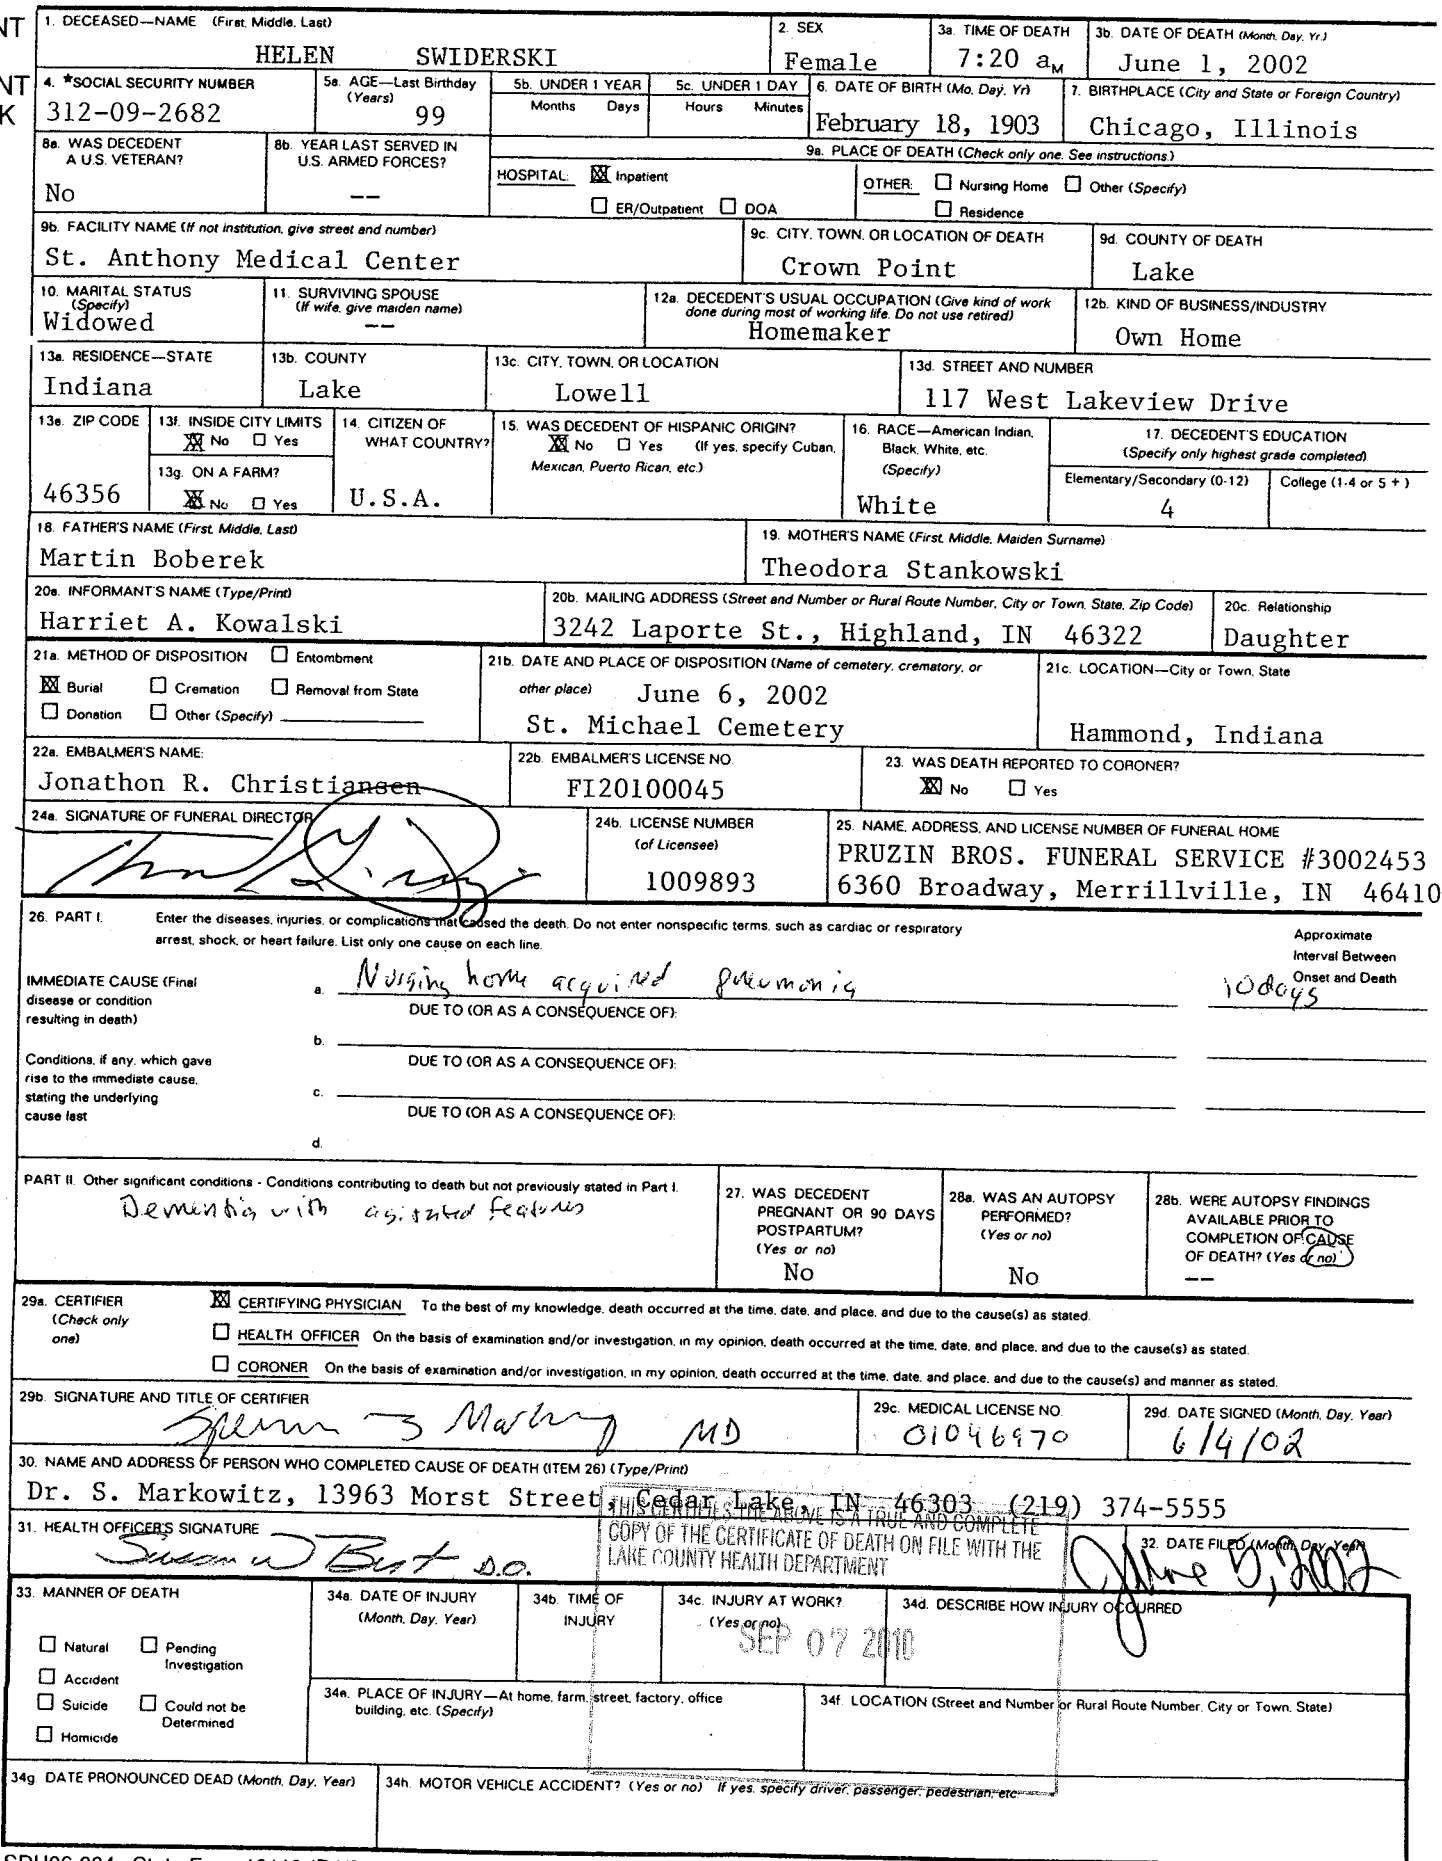 NT
1. DECEASED—NAME (First, Middle, Last)
HELEN SWIDERSKI
2. SEX
Female
3a. TIME OF DEATH
7:20 aM
3b. DATE OF DEATH (Month, Day, Yr.)
June 1, 2002
NT
K
4. *SOCIAL SECURITY NUMBER
312-09-2682
5a. AGE—Last Birthday
(Years)
99
5b. UNDER 1 YEAR
Months Days
5c. UNDER 1 DAY
Hours Minutes
6. DATE OF BIRTH (Mo. Day, Yr)
February 18, 1903
7. BIRTHPLACE (City and State or Foreign Country)
Chicago, Illinois
8a. WAS DECEDENT
A U.S. VETERAN?
No
8b. YEAR LAST SERVED IN
U.S. ARMED FORCES?
--
9a. PLACE OF DEATH (Check only one. See instructions.)
HOSPITAL: Inpatient
ER/Outpatient DOA
OTHER: Nursing Home Other (Specify)
Residence
9b. FACILITY NAME (If not institution, give street and number)
St. Anthony Medical Center
9c. CITY, TOWN, OR LOCATION OF DEATH
Crown Point
9d. COUNTY OF DEATH
Lake
10. MARITAL STATUS
(Specify)
Widowed
11. SURVIVING SPOUSE
(If wife, give maiden name)
--
12a. DECEDENT'S USUAL OCCUPATION (Give kind of work
done during most of working life. Do not use retired)
Homemaker
12b. KIND OF BUSINESS/INDUSTRY
Own Home
13a. RESIDENCE—STATE
Indiana
13b. COUNTY
Lake
13c. CITY, TOWN, OR LOCATION
Lowell
13d. STREET AND NUMBER
117 West Lakeview Drive
13e. ZIP CODE
46356
13f. INSIDE CITY LIMITS
No Yes
13g. ON A FARM?
No Yes
14. CITIZEN OF
WHAT COUNTRY?
U.S.A.
15. WAS DECEDENT OF HISPANIC ORIGIN?
No Yes (If yes, specify Cuban,
Mexican, Puerto Rican, etc.)
16. RACE—American Indian,
Black, White, etc.
(Specify)
White
17. DECEDENT'S EDUCATION
(Specify only highest grade completed)
Elementary/Secondary (0-12) College (1-4 or 5 + )
4
18. FATHER'S NAME (First, Middle, Last)
Martin Boberek
19. MOTHER'S NAME (First, Middle, Maiden Surname)
Theodora Stankowski
20a. INFORMANT'S NAME (Type/Print)
Harriet A. Kowalski
20b. MAILING ADDRESS (Street and Number or Rural Route Number, City or Town, State, Zip Code)
3242 Laporte St., Highland, IN 46322
20c. Relationship
Daughter
21a. METHOD OF DISPOSITION Entombment
Burial Cremation Removal from State
Donation Other (Specify)
21b. DATE AND PLACE OF DISPOSITION (Name of cemetery, crematory, or
other place) June 6, 2002
St. Michael Cemetery
21c. LOCATION—City or Town, State
Hammond, Indiana
22a. EMBALMER'S NAME:
Jonathon R. Christiansen
22b. EMBALMER'S LICENSE NO.
FI20100045
23. WAS DEATH REPORTED TO CORONER?
No Yes
24a. SIGNATURE OF FUNERAL DIRECTOR
24b. LICENSE NUMBER
(of Licensee)
1009893
25. NAME, ADDRESS, AND LICENSE NUMBER OF FUNERAL HOME
PRUZIN BROS. FUNERAL SERVICE #3002453
6360 Broadway, Merrillville, IN 46410
26. PART I. Enter the diseases, injuries, or complications that caused the death. Do not enter nonspecific terms, such as cardiac or respiratory
arrest, shock, or heart failure. List only one cause on each line.
Approximate
Interval Between
Onset and Death
IMMEDIATE CAUSE (Final
disease or condition
resulting in death)
a. Nursing home acquired pneumonia
10 days
DUE TO (OR AS A CONSEQUENCE OF):
b.
Conditions, if any, which gave
rise to the immediate cause,
stating the underlying
cause last
DUE TO (OR AS A CONSEQUENCE OF):
c.
DUE TO (OR AS A CONSEQUENCE OF):
d.
PART II. Other significant conditions - Conditions contributing to death but not previously stated in Part I.
Dementia with agitated features
27. WAS DECEDENT
PREGNANT OR 90 DAYS
POSTPARTUM?
(Yes or no)
No
28a. WAS AN AUTOPSY
PERFORMED?
(Yes or no)
No
28b. WERE AUTOPSY FINDINGS
AVAILABLE PRIOR TO
COMPLETION OF CAUSE
OF DEATH? (Yes or no)
--
29a. CERTIFIER
(Check only
one)
CERTIFYING PHYSICIAN To the best of my knowledge, death occurred at the time, date, and place, and due to the cause(s) as stated.
HEALTH OFFICER On the basis of examination and/or investigation, in my opinion, death occurred at the time, date, and place, and due to the cause(s) as stated.
CORONER On the basis of examination and/or investigation, in my opinion, death occurred at the time, date, and place, and due to the cause(s) and manner as stated.
29b. SIGNATURE AND TITLE OF CERTIFIER
MD
29c. MEDICAL LICENSE NO.
01046970
29d. DATE SIGNED (Month, Day, Year)
6/4/02
30. NAME AND ADDRESS OF PERSON WHO COMPLETED CAUSE OF DEATH (ITEM 26) (Type/Print)
Dr. S. Markowitz, 13963 Morst Street, Cedar Lake, IN 46303 (219) 374-5555
THIS CERTIFIES THE ABOVE IS A TRUE AND COMPLETE
COPY OF THE CERTIFICATE OF DEATH ON FILE WITH THE
LAKE COUNTY HEALTH DEPARTMENT
31. HEALTH OFFICER'S SIGNATURE
Susan W Best D.O.
32. DATE FILED (Month, Day, Year)
June 5, 2002
33. MANNER OF DEATH
Natural Pending
Investigation
Accident
Suicide Could not be
Determined
Homicide
34a. DATE OF INJURY
(Month, Day, Year)
34b. TIME OF
INJURY
34c. INJURY AT WORK?
(Yes or no)
SEP 07 2010
34d. DESCRIBE HOW INJURY OCCURRED
34e. PLACE OF INJURY—At home, farm, street, factory, office
building, etc. (Specify)
34f. LOCATION (Street and Number or Rural Route Number, City or Town, State)
34g. DATE PRONOUNCED DEAD (Month, Day, Year)
34h. MOTOR VEHICLE ACCIDENT? (Yes or no) If yes, specify driver, passenger, pedestrian, etc.